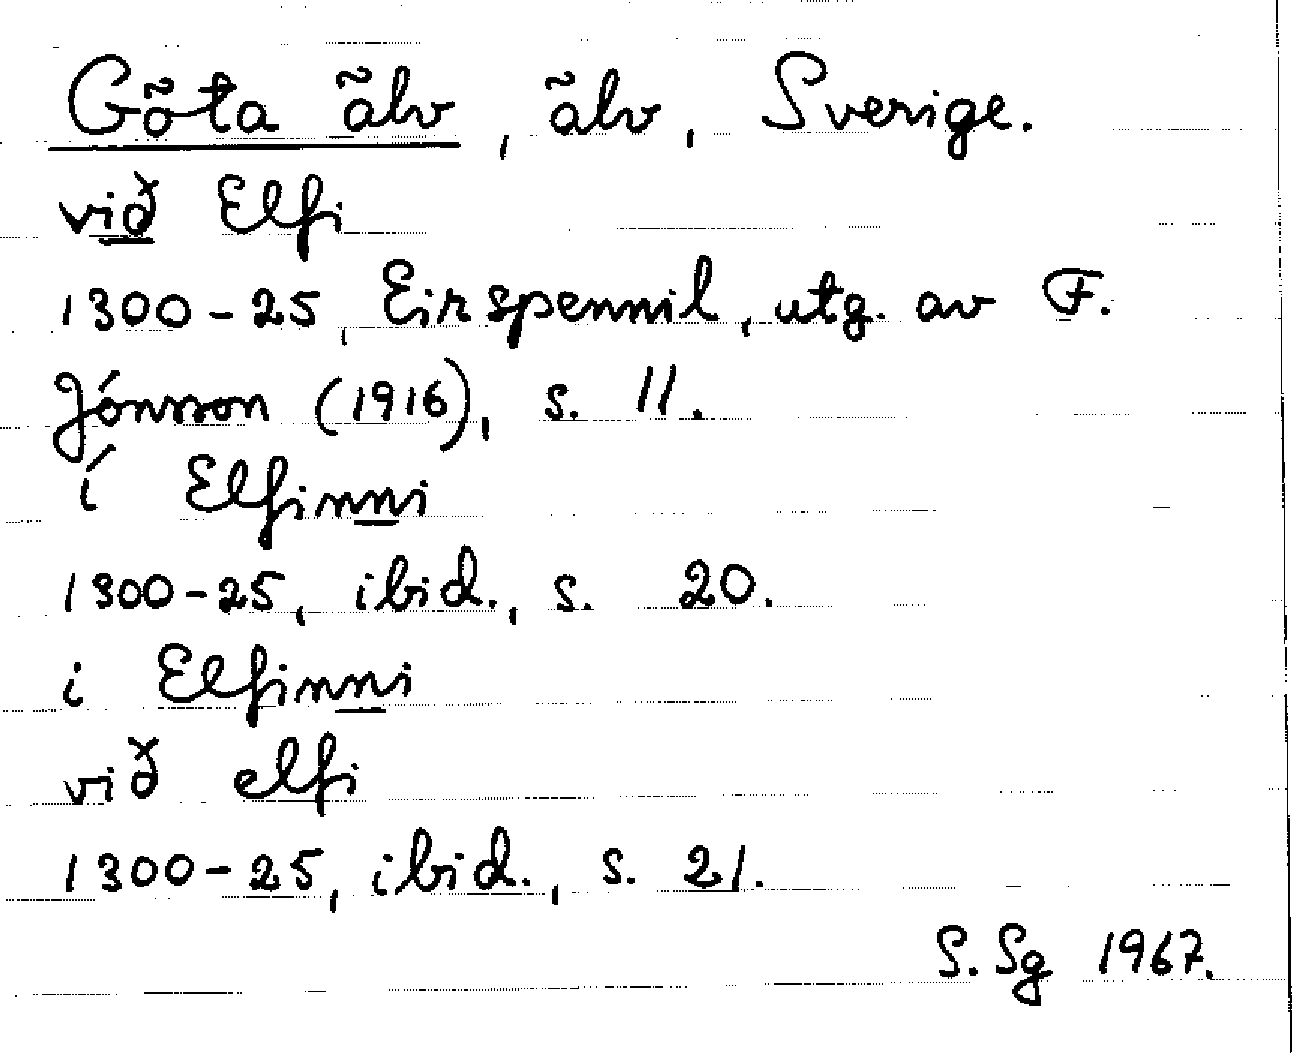 Göta älv, älv, Sverige.
við Elfi
1300-25, Eirspennil, utg. av F.
Jónsson (1916), s. 11.
í Elfinni
1300-25, ibid., s. 20.
i Elfinni
við elfi
1300-25, ibid., s. 21.
S. Sg 1967.